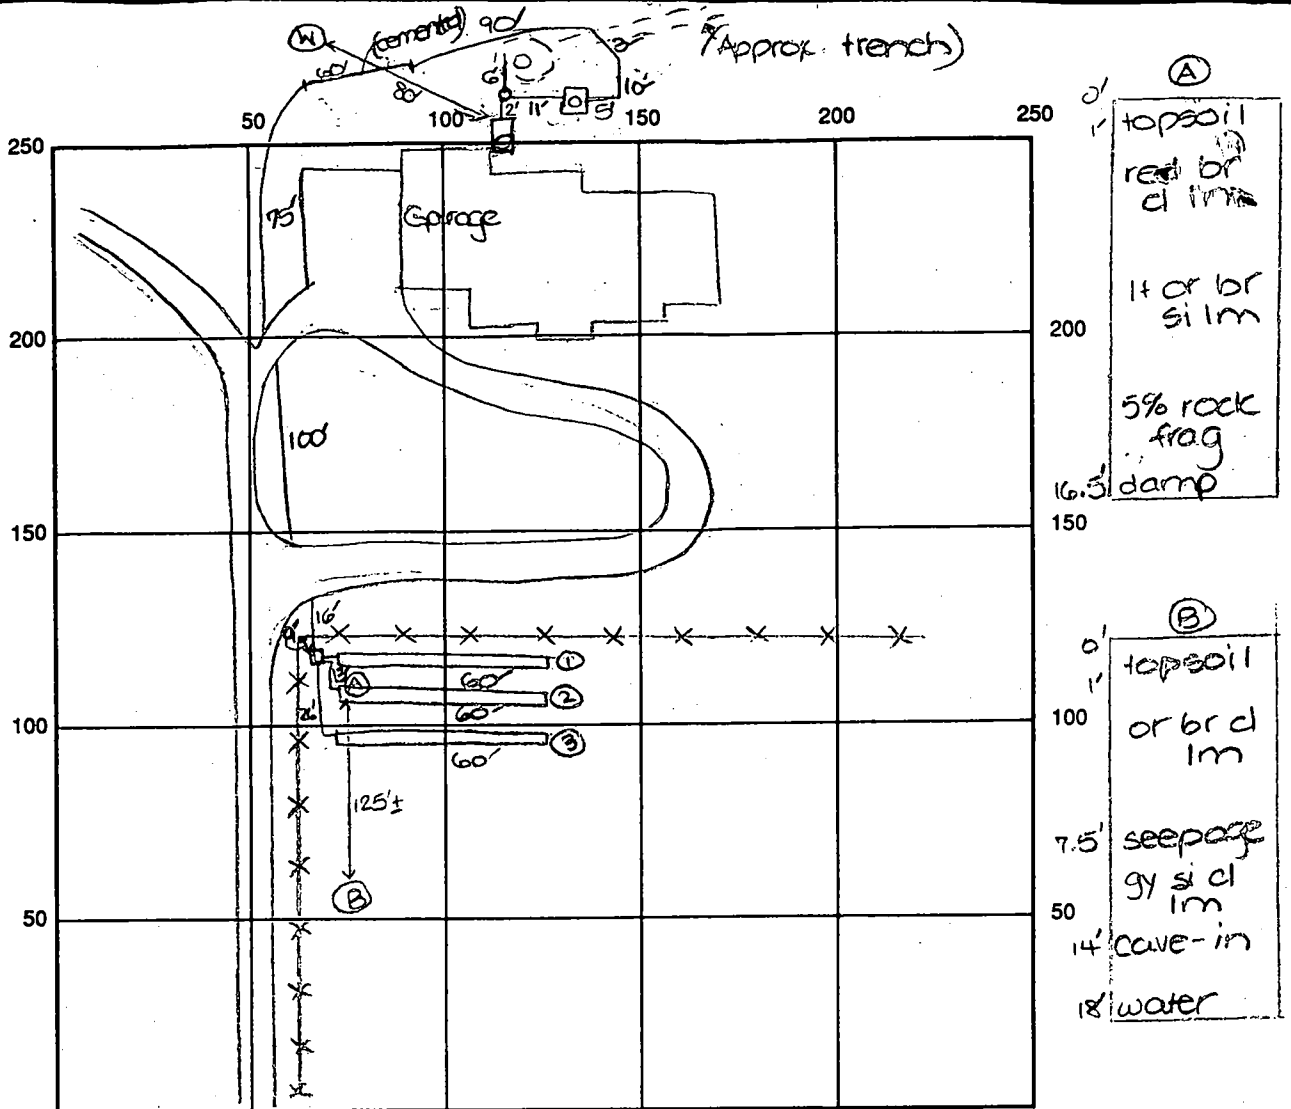 W
(cemented) 90'
(Approx. trench)
60'
80'
6'
2' 11' 5'
10'
50 100 150 200 250
250
75'
Garage
200
200
100'
150
150
16'
1
60'
A
2
60'
100
100
26'
3
60'
125'±
B
50
50
A
0'
1'
topsoil
red br
cl lm
lt or br
si lm
5% rock
frag
16.5' damp
B
0'
1'
topsoil
or br cl
lm
7.5' seepage
gy si cl
lm
14' cave-in
18' water